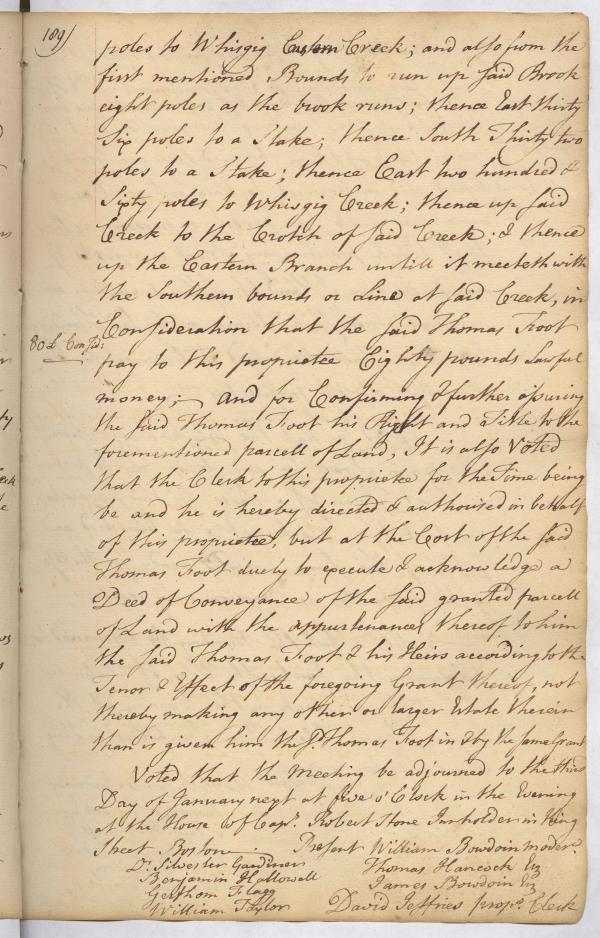 189)
poles to Whisgig Eastern Creek; and also from the
first mentioned Bounds to run up said Brook
eight poles as the brook runs; thence East thirty
Six poles to a Stake; thence South Thirty two
poles to a Stake; thence East two hundred &
Sixty poles to Whisgig Creek; thence up said
Creek to the Crotch of said Creek; & thence
up the Eastern Branch untill it meeteth with
the Southern bounds or Line at said Creek, in
80 £ Consid:
Consideration that the said Thomas Foot
pay to this proprietee Eighty pounds Lawful
money; - and for Confirming & further assuring
the said Thomas Foot his Right and Title to the
forementioned parcell of Land, It is also Voted
that the Clerk to this proprietee for the Time being
be and he is hereby directed & authorised in behalf
of this proprietee, but at the Cost of the said
Thomas Foot duely to execute & acknowledge a
Deed of Conveyance of the said granted parcell
of Land with the appurtenances thereof to him
the said Thomas Foot & his Heirs according to the
Tenor & Effect of the foregoing Grant thereof, not
thereby making any other or larger Estate therein
than is given him the sd. Thomas Foot in & by the same Grant
Voted that the Meeting be adjourned to the third
Day of January next at five o'Clock in the Evening
at the House of Capn. Robert Stone Innholder in King
Street Boston. Present William Bowdoin moder.
Dr. Silvester Gardiner Thomas Hancock Esq
Benjamin Hallowell James Bowdoin Esq
Gershom Flagg
William Taylor David Jeffries proprs. Clerk